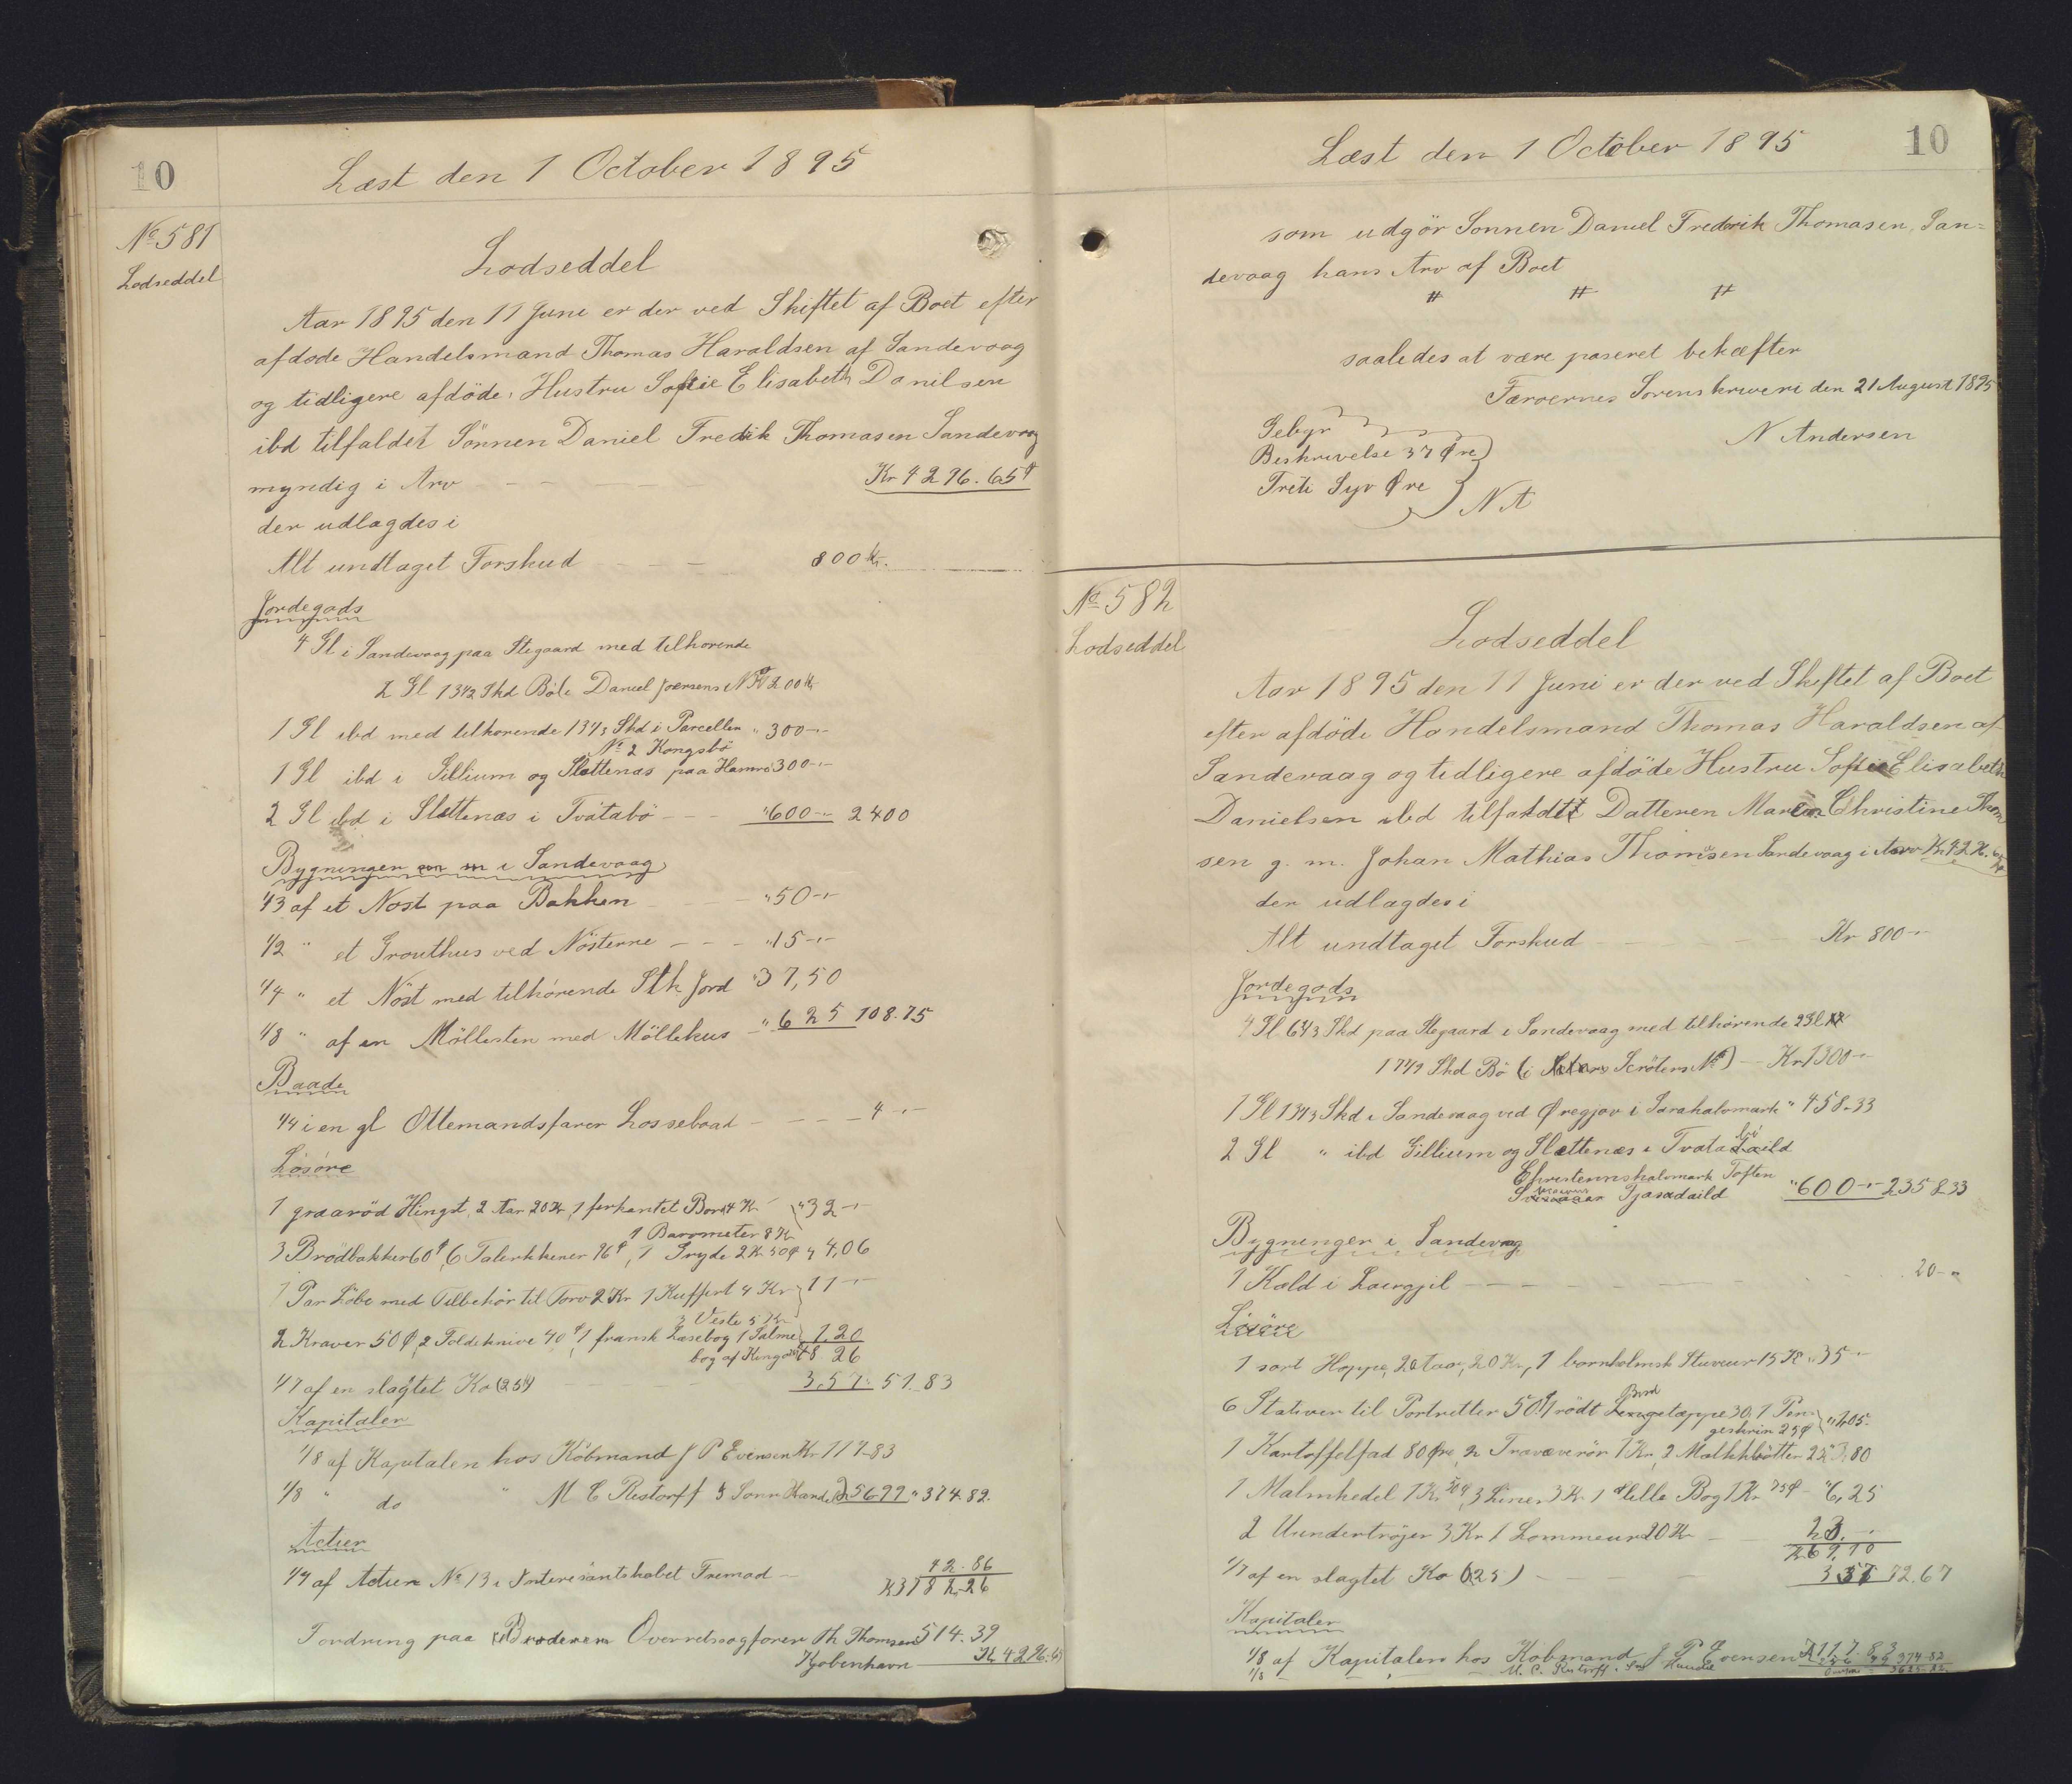 10
Læst den 1 October 1895
No 581
Lodseddel
Lodseddel
Aar 1895 den 11 Juni er der ved Skiftet af Boet efter
afdøde Handelsmand Thomas Haraldsen af Sandevaag
og tidligere afdöde Hustru Sofie Elisabeth Danilsen
ibd tilfaldet Sönnen Daniel Fredrik Thomasen Sandevaag
myndig i Arv Kr 4296.65
der udlagdes i
Alt undtaget Forskud 800 kr.
Jordegods
4 Gl i Sandevaag paa Stegaard med tilhorende
2 Gl 13 1/2 Skd Böle Daniel Joensens 1200 kr
1 Gl ibd med tilhorende 13 1/3 Skd i Parcellen " 300-"-
No 2 Kongsbö
1 Gl ibd i Gillium og Slættenæs paa Hamre 300-"-
2 Gl ibd i Slættenæs i Tvatabö "600-"- 2400
Bygningen i Sandevaag
1/3 af et Nost paa Bakken "50-"-
1/2 " et Grouthus ved Nösterne "15-"-
1/4 " et Nöst med tilhörende Stk Jord "37,50
1/8 " af en Möllesten med Möllehus " 625 108.75
Baade
1/4 i en gl Ottemandsfarer Lossebaad 4-"-
Lösöre
1 graarød Hingst 2 Aar 20 Kr, 1 firkantet Bord 4 Kr "32-"-
1 Barometer 8 Kr
3 Brödbakker 60, 6 Talerkkener 96, 1 Gryde 2 Kr 50 " 4,06
1 Par Löbe med Tilbehör til Torv 2 Kr 1 Kuffert 4 Kr 11-"-
3 Veste 5 Kr
2 Kraver 50, 2 Foldeknive 40, 1 fransk Læsebog 1 Salme 1,20
bog af Kingo 48 26
1/7 af en slagtet Ko (25) 3.57 51.83
Kapitaler
1/8 af Kapitalen hos Köbmand J P Evensen Kr 117-83
1/8 " do " M C Restorff & Sons Handel 256-99 " 374.82.
Actier
1/7 af Actien No 13 i Interesantskabet Fremad 42.86
Kr 3782.26
Fordring paa Broderen Overretssagforer Th Thomsen 514.39
Kjobenhavn Kr 4296.65
Læst den 1 October 1895
10
som udgör Sonnen Daniel Fredrik Thomasen, San=
devaag hans Arv af Boet
saaledes at være paseret bekæfter
Færoernes Sorenskriveri den 21 August 1895
N Andersen
Gebyr
Beskrivelse 37 Øre
Treti Syv Øre
N A
No 582
Lodseddel
Lodseddel
Aar 1895 den 11 Juni er der ved Skiftet af Boet
efter afdöde Handelsmand Thomas Haraldsen af
Sandevaag og tidligere afdöde Hustru Sofie Elisabeth
Danielsen ibd tilfaldet Datteren Maren Christine Thom
sen g. m. Johan Mathias Thomsen Sandevaag i Arv
der udlagdes i
Alt undtaget Forskud Kr 800-"-
Jordegods
4 Gl 6 2/3 Skd paa Stegaard i Sandevaag med tilhörende 2 Gl
17 7/9 Skd Bö Kr 1300-"-
1 Gl 13 1/3 Skd i Sandevaag ved Øregjov i Sarahalvmark " 458.33
2 Gl " ibd Gillium og Slættenæs i Tvata
Toften
Tjasadaild "600-"- 2358.33
Bygninger i Sandevaag
1 Kald i Laergjil 20-"
Lösöre
1 sort Hoppe, 2 Aar, 20 Kr, 1 bornholmsk Stueuur 15 Kr "35-"-
6 Stativer til Portretter 50, 1 rödt Bord tæppe 30, 1 Pen
geskrin 25 "1,05
1 Kartoffelfad 80 Øre, 2 Travæverör 1 Kr, 2 Malkkbötter
1 Malmkedel 1 Kr 50, 3 Liner 3 Kr 1 lille Bog 1 Kr 75 - "6,25
2 Uundertröjer 3 Kr 1 Lommeur 20 Kr 23.-"
69,10
1/7 af en slagtet Ko (25) 3 57 72.67
Kapitaler
1/8 af Kapitalen hos Köbmand J P Evensen 117.83
1/8 - M. C. Restorff & Søn Handel 374-82